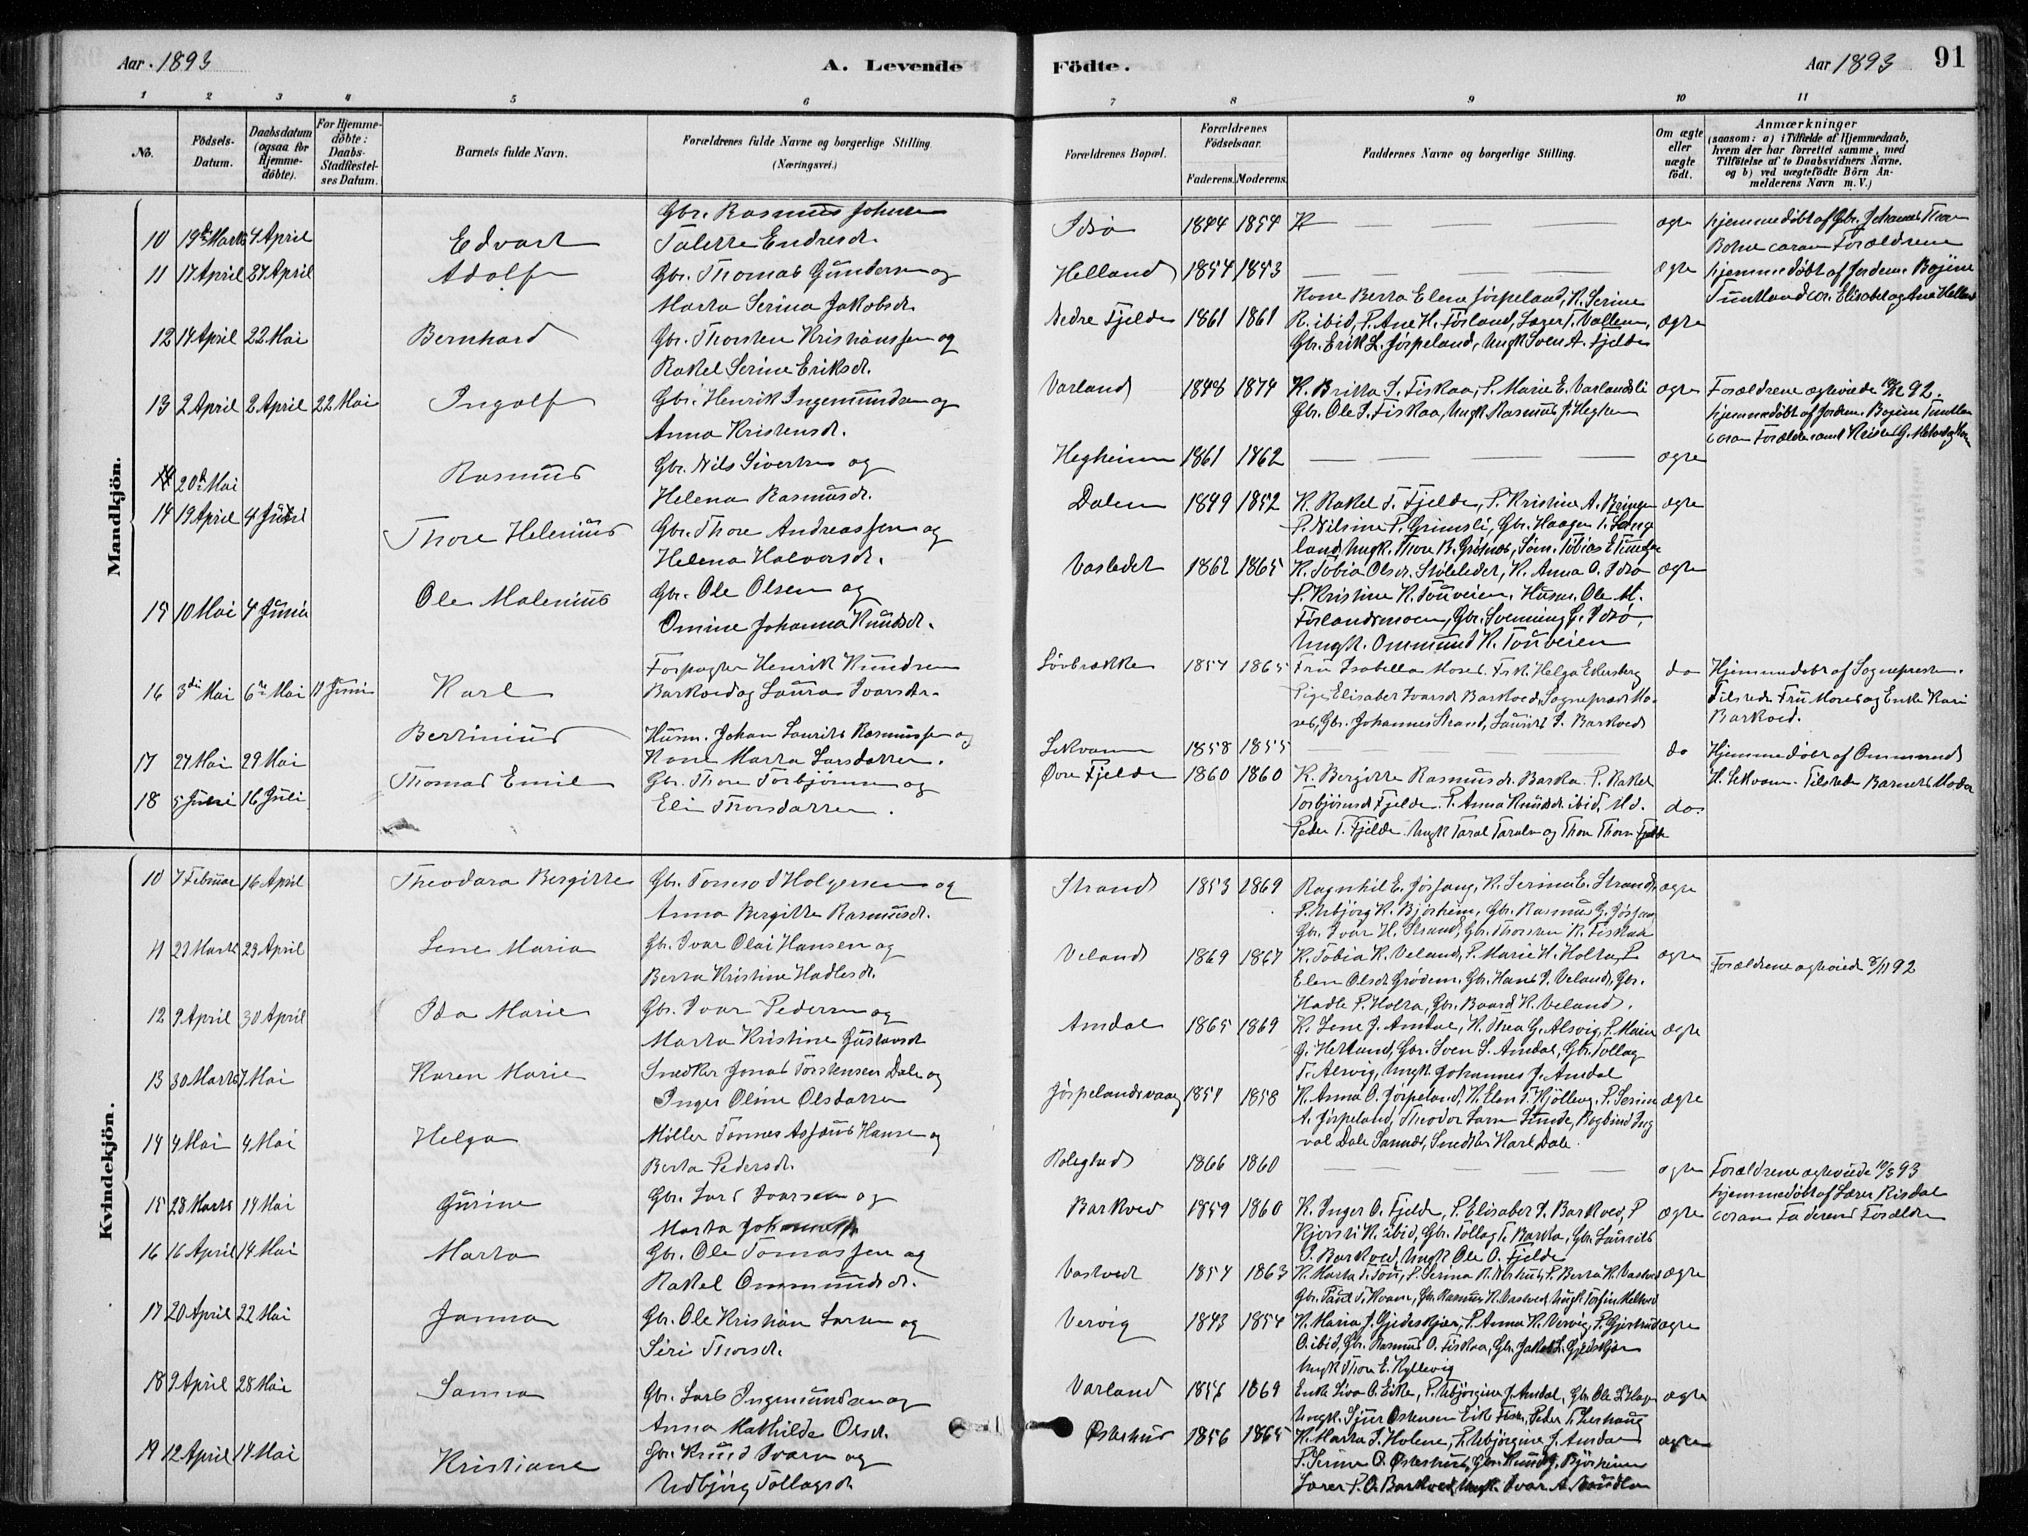 Aar. 1893
A. Levende
Födte.
Aar 1893
91
1 2 3 4 5 6 7 8 9 10 11
No.
Födsels-Datum.
Daabsdatum (ogsaa for Hjemme-döbte).
For Hjemme-döbte: Daabs-Stadfæstel-ses Datum.
Barnets fulde Navn.
Forældrenes fulde Navne og borgerlige Stilling (Næringsvei.)
Forældrenes Bopæl.
Forældrenes Födselsaar.
Faderens. Moderens.
Faddernes Navne og borgerlige Stilling.
Om ægte eller uægte födt.
Anmærkninger
(saasom: a) i Tilfælde af Hjemmedaab, hvem der har forrettet samme, med Tilföielse af to Daabsvidners Navne, og b) ved uægtefödte Börn Anmelderens Navn m. V.)
Mandkjön.
10 19de Marts 4 April Edvart Gbr. Rasmus Johnsen
Talette Endresdr. Idsø 1844 1854 ægte Hjemmedøbt af Gbr. Johannes
coram Forældrene
11 17 April 27 April Adolf Gbr. Thomas Gundersen og
Marta Serina Jakobsdr. Helland 1854 1853 ægte Hjemmedøbt af Jordem. Bojine
Tuntland cor. Elisabet og Ane Helland
12 14 April 22 Mai Bernhard Gbr. Thorsten Kristianssen og
Rakel Serine Eriksdr. Nedre Fjelde 1861 1861 Kone Berta Elene Jørpeland, K. Serine
R. ibid, P. Ane H. Førland,
Gbr. Erik L. Jørpeland, Ungk. Sven A. Fjelde ægte
13 2 April 2 April 22 Mai Ingolf Gbr. Henrik Ingemundsen og
Anna Kristensdr. Varland 1848 1874 K. Britta S. Fiskaa, P. Marie E. Varlandsli
Gbr. Ole S. Fiskaa, Ungk. Rasmus J. ægte Forældrene ægteviede 92.
Hjemmedøbt af Jordem. Bojine
coram Forældre samt
20de Mai Rasmus Gbr. Nils Sivertsen og
Helena Rasmusdr. Hegheim 1861 1862 ægte
14 19 April 4 Juni Thore Helenius Gbr. Thore Andreassen og
Helena Halvorsdr. Dalen 1849 1852 K. Rakel T. Fjelde, P. Kristine A.
P. Nilsine P. Grimsli, Gbr. Haagen T. Lange
land, Ungk. Thore B. ægte
15 10 Mai 4 Junia Ole Malenius Gbr. Ole Olsen og
Omine Johanna Knudsdr. Vasledet 1862 1865 K. Tobia Olsdr. Støleledet, K. Anna O. Idsø
P. Kristine K. Touveien, Husm. Ole M.
Førlandsmoen, Gbr. Svenning G. Idsø,
Ungk. Ommund K. Touveien ægte
16 3die Mai 6te Mai 11 Juni Karl Forpagter Henrik Knudsen
Barkved og Laura Ivarsdr. Løvbrække 1854 1865 Fru Isabella Moses. Frk. Helga Eckersberg
Pige Elisabet Ivarsdr Barkved, Sogneprest Mo-
ses, Gbr. Johannes Strand, Laurits I. Barkved do Hjemmedøbt af Sogneprest.
Tilstede Fru Moses og Enke Kari
Barkved.
17 27 Mai 29 Mai Bertinius Husm. Johan Laurits Rasmussen og
Kone Marta Larsdatter. Lekvam 1858 1855 do Hjemmedøbt af Ommund
H. Lekvam. Tilstede Barnets Moder
18 5 Juni 16 Juli Thomas Emil Gbr. Thore Torbjørnsen og
Eli Thorsdatter. Øvre Fjelde 1860 1860 K. Bergitte Rasmusdr. Barka. P. Rakel
Torbjørnsdr Fjelde. P. Anna Knudsdr. ibid,
Peder T. Fjelde. Ungk Taral Taralsen og Thore Thorsen Fjelde do.
Kvindekjön.
10 7 Februar 16 April Theodora Bergitte Gbr. Tormod Holgersen og
Anna Bergitte Rasmusdr. Strand 1853 1869 Ragnhil E. Jøssang, K. Serina E. Strand
P. Udbjørg K. Bjørheim, Gbr. Rasmus G. Jøssang
Gbr. Ivar H. Strand, Gbr. Thorsten K. Fiskaa ægte
11 27 Marts 23 April Lene Maria Gbr. Ivar Olai Hansen og
Berta Kristine Hadlesdr. Veland 1869 1867 K. Tobia K. Veland, P. Marie H. Holta, P.
Elen Olsdr Grødem, Gbr. Hans I. Veland, Gbr.
Hadle P. Holta, Gbr. Baard K. Veland. ægte Forældrene ægteviede /11 92
12 9 April 30 April Ida Marie Gbr. Ivar Pedersen og
Marta Kristine Gustavsdr Amdal 1865 1869 K. Lene J. Amdal, K. Thea G. Alsvig, P. Marie
J. Hetland, Gbr. Sven S. Amdal, Gbr. Tollag
T. Alsvig, Ungk. Johannes J. Amdal ægte
13 30 Marts 7 Mai Karen Marie Snedker Jonas Torstensen Dale og
Inger Oline Olsdatter Jørpelandsvaag 1854 1858 K. Anna O. Jørpeland, K. Elen T. Kjølleng, P. Serine
A. Jørpeland, Theodor Larsen Lunde, Bogbind. Ing
val Dale Sannes, Snedker Karl Dale. ægte
14 4 Mai 4 Mai Helga Møller Tønnes Asfaus Hansen og
Berta Pedersdr. 1866 1860 ægte Forældrene ægteviede 10/3 93
Hjemmedøbt af Lærer Risdal
coram Faderens Forældre
15 28 Marts 14 Mai Gurine Gbr. Lars Ivarsen og
Marta Johannesdr Barkved 1859 1860 K. Inger O. Fjelde, P. Elisabet I. Barkved, P.
Kjersti K. ibid, Gbr. Tollag T. Barka, Gbr. Laurits
I. Barkved, Ungk. Ole O. Fjelde ægte
16 16 April 14 Mai Marta Gbr. Ole Tomassen og
Rakel Ommundsdr. Vastvedt 1854 1863 K. Marta T. Tou, P. Serina P. Berta K. Vastved
Gbr. Paul T. Kvam, Gbr. Rasmus K. Vastved, Ungk. Torfin Meltved ægte
17 20 April 22 Mai Janna Gbr. Ole Kristian Larsen og
Siri Thorsdr. Vervig 1843 1854 K. Maria J. Gjedeskjær, P. Anna K. Vervig, P. Gjertrud
O. ibid, Gbr. Rasmus O. Fiskaa, Gbr. Jakob L. Gjedeskjær
Ungk Thore E. Kyllevig ægte
18 9 April 28 Mai Sanna Gbr. Lars Ingemundsen og
Anna Mathilde Olsdr. Varland 1856 1869 Enke Siva O. Eike, P. Udbjørgine J. Amdal, Gbr. Ole L. Hagen
Ungk. Sjur Østensen Eik, Peder ægte
19 12 April 14 Mai Kristiane Gbr. Knud Ivarsen og
Udbjørg Tollagsdr Østerhus 1856 1865 K. Marta I. Holene, P. Udbjørgine J. Amdal
P. Serine O. Østerhus, Gbr. Knud J. Bjørheim
Lærer P. O. Barkved, Ungk. Ivar A. ægte